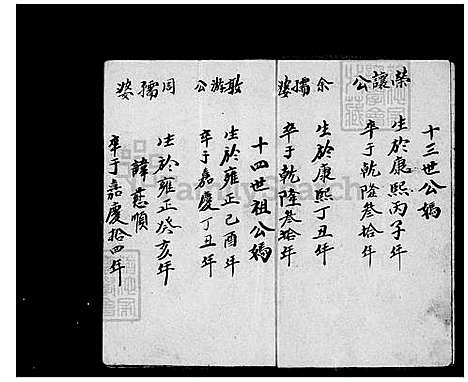 十三世公媽
榮讓公
生於康熙丙子年
卒于乾隆叁拾年
余孺婆
生於康熙丁丑年
卒于乾隆叁拾年
十四世祖公媽
敦游公
生於雍正己酉年
卒于嘉慶丁丑年
周孺婆
生於雍正癸亥年
諱慈順
卒于嘉慶拾四年
FamilySearch